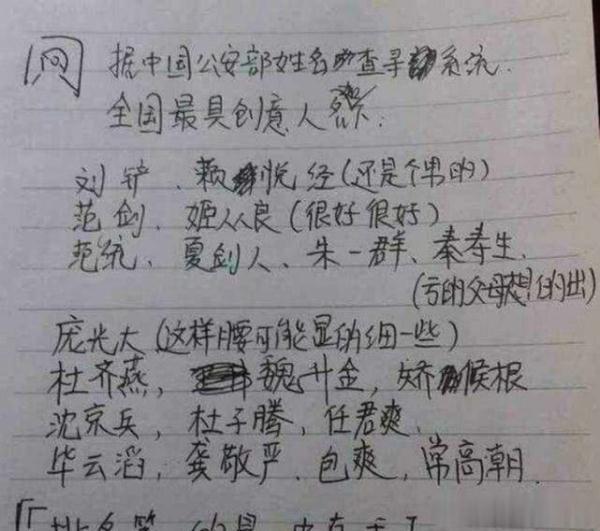 问 据中国公安部姓名查寻系统.
全国最具创意人名如下:
刘铲、赖悦经(还是个男的)
范剑、姬从良(很好很好)
范统、夏剑人、朱一群、秦寿生、
(亏的父母想的出)
庞光大(这样腰可能显的细一些)
杜齐燕, 魏升金, 矫候根
沈京兵, 杜子腾, 任君爽.
毕云涛, 龚敬严. 包爽, 常高朝.